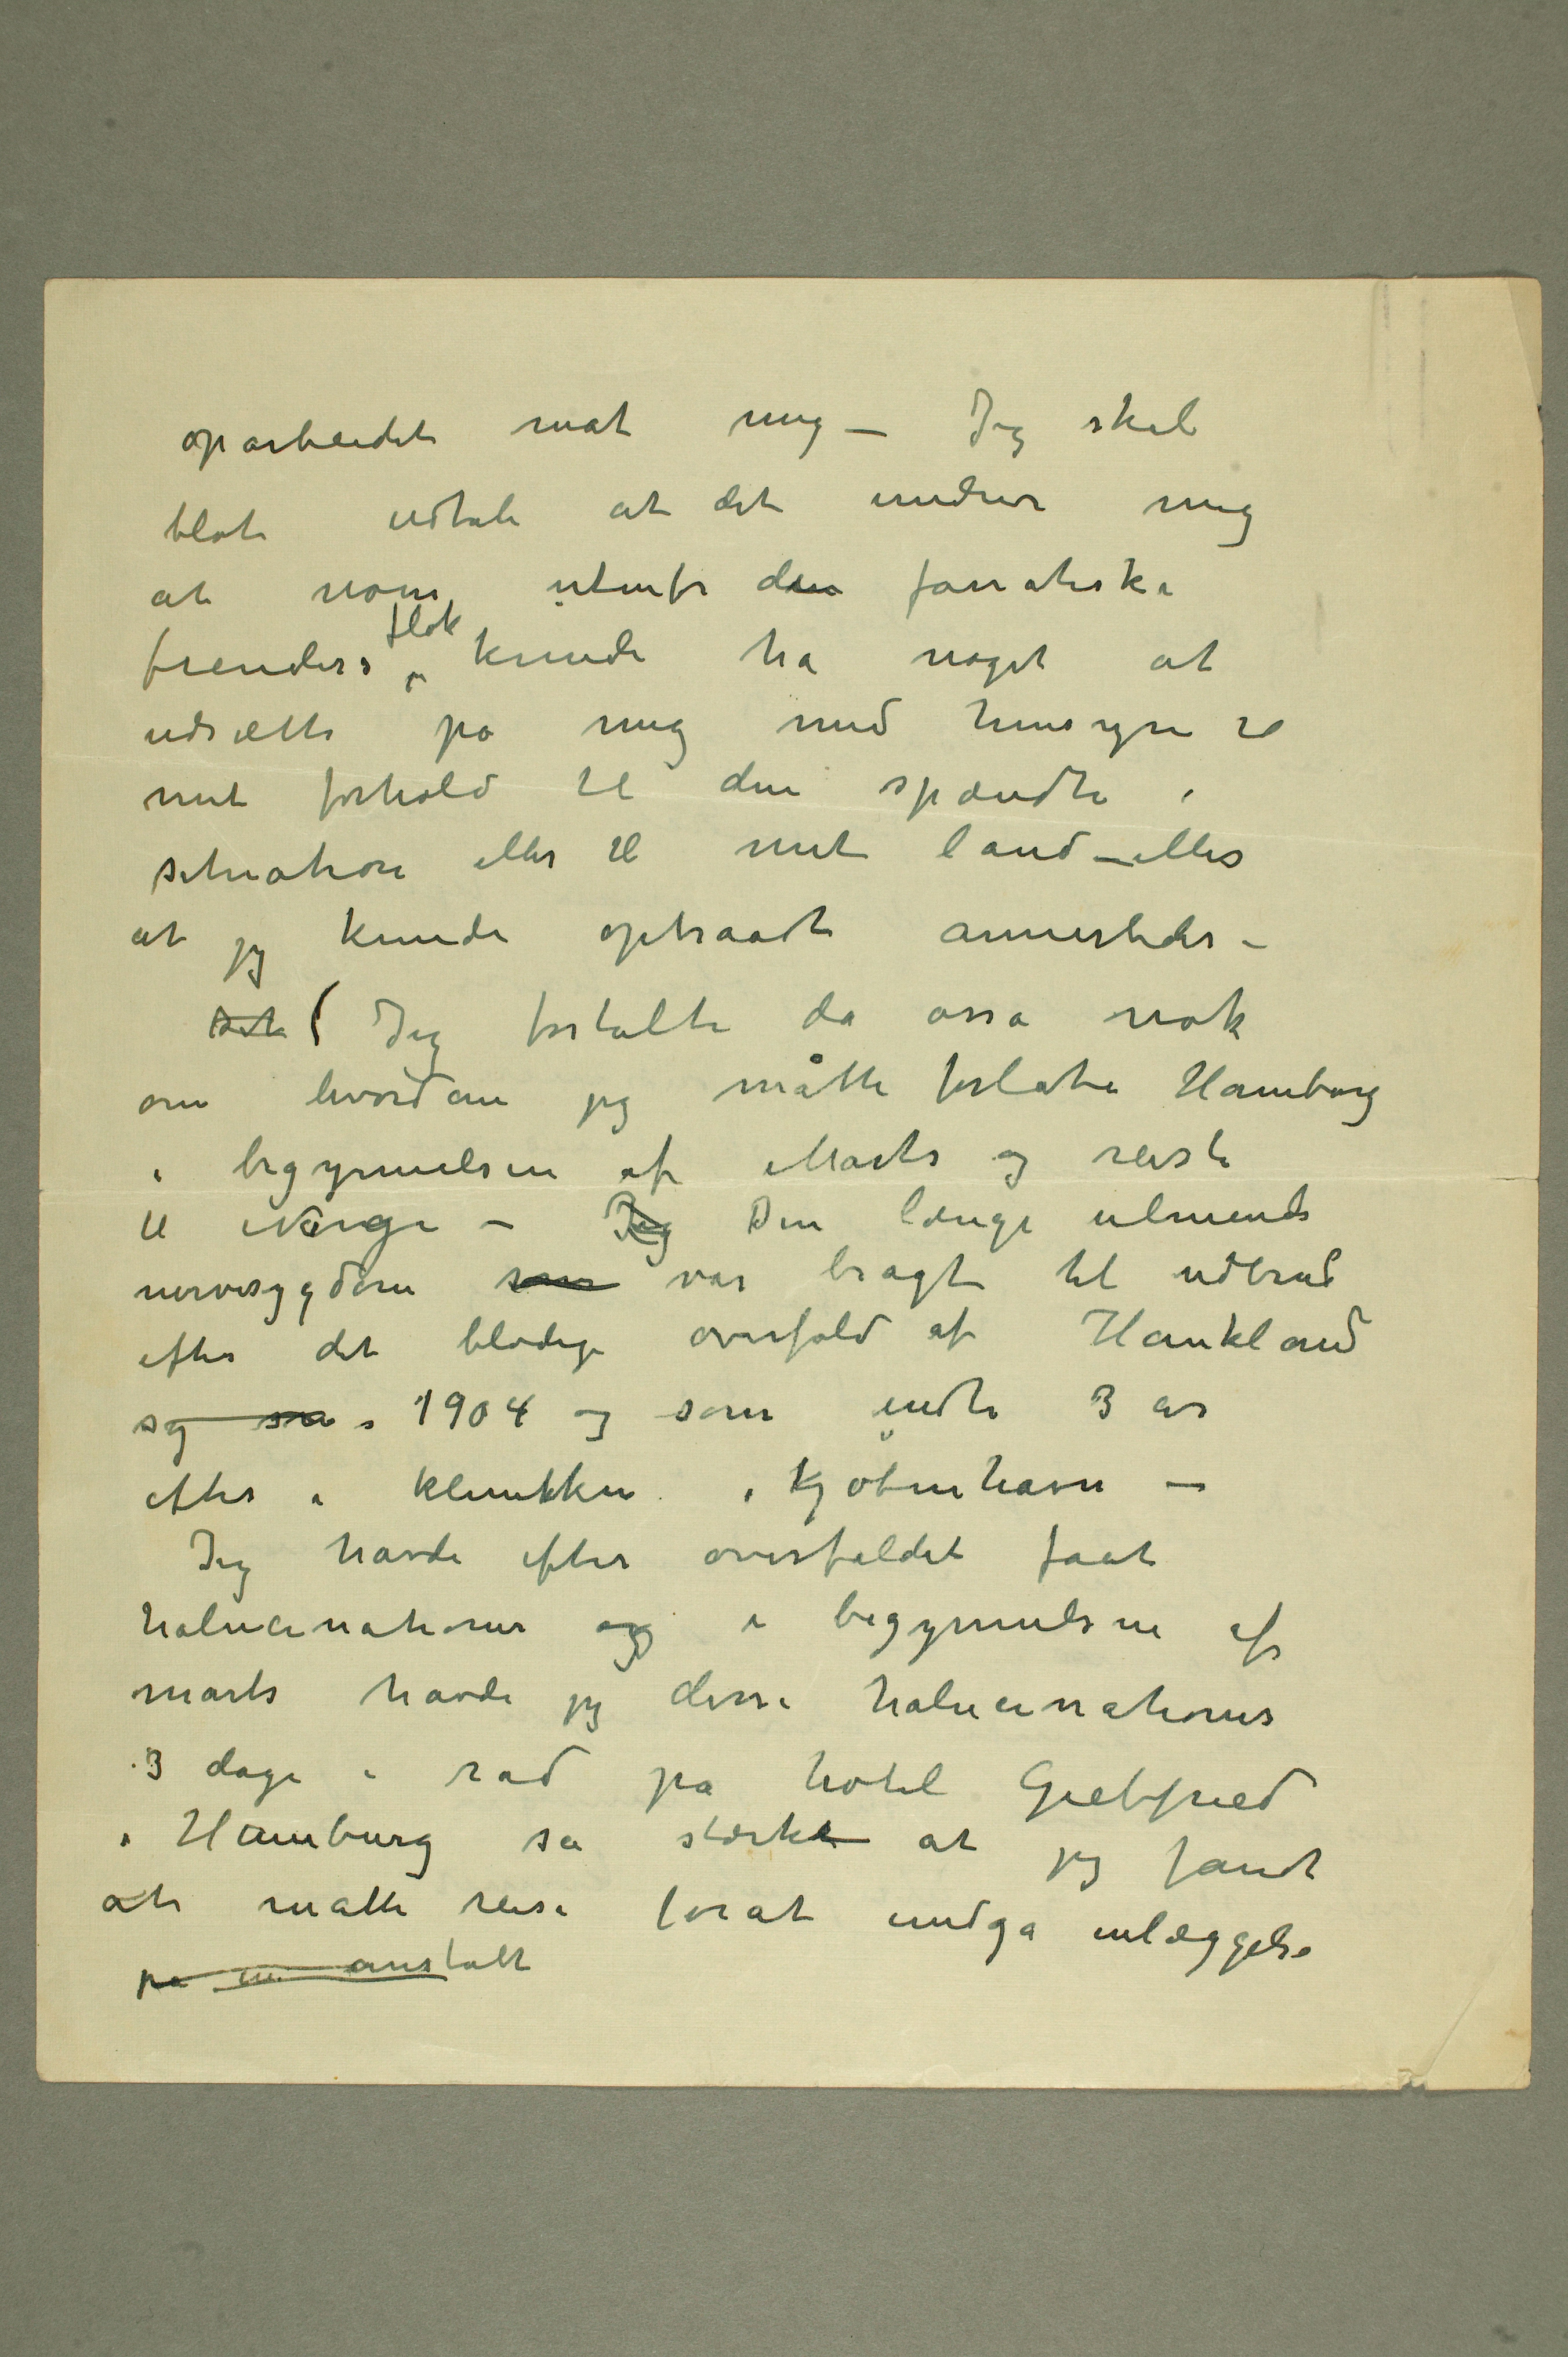 oparbeidet mot mig – Jeg skal
blot udtale at det undrer mig
at noen utenfr den fanatiske
fienders flok kunde ha noget at
udsætte på mig med hensyn til
mit forhold til den spændte
situation eller til mit land – eller
at jeg kunde optraadt annerledes –
Det ( Jeg fortalte da ossa nok
om hvordan jeg måtte forlate Hamborg
i begynnelsen af Marts og reiste
til Norge – Jeg Den længe ulmende
nervesygdom som var bragt til udbrud
efter det blodige overfald af Haukland
og så i 1904 og som endte 3 år
efter i klinikken i Kjøbenhavn –
Jeg havde efter overfaldet faat
halucinationer og i begynnelsen af
marts havde jeg disse halucinationer
3 dage i rad på hotel Giebfried
i Hamburg så stærkt at jeg fandt
at måtte reise forat undgå inlæggelse
på en anstalt